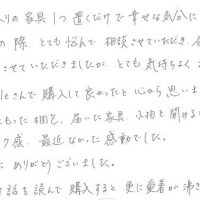 入りの家具1つ置くだけで幸せな気分に
の際 とても悩んで 相談させていただき、
させていただきましたが、とても気持ちよく
さんで購入して良かったと心から思いま
もった梱包、届いた家具、小物を開ける
ク感、最近なかった感動でした。
ありがとうございました。
話を読んで購入すると更に愛着が沸き